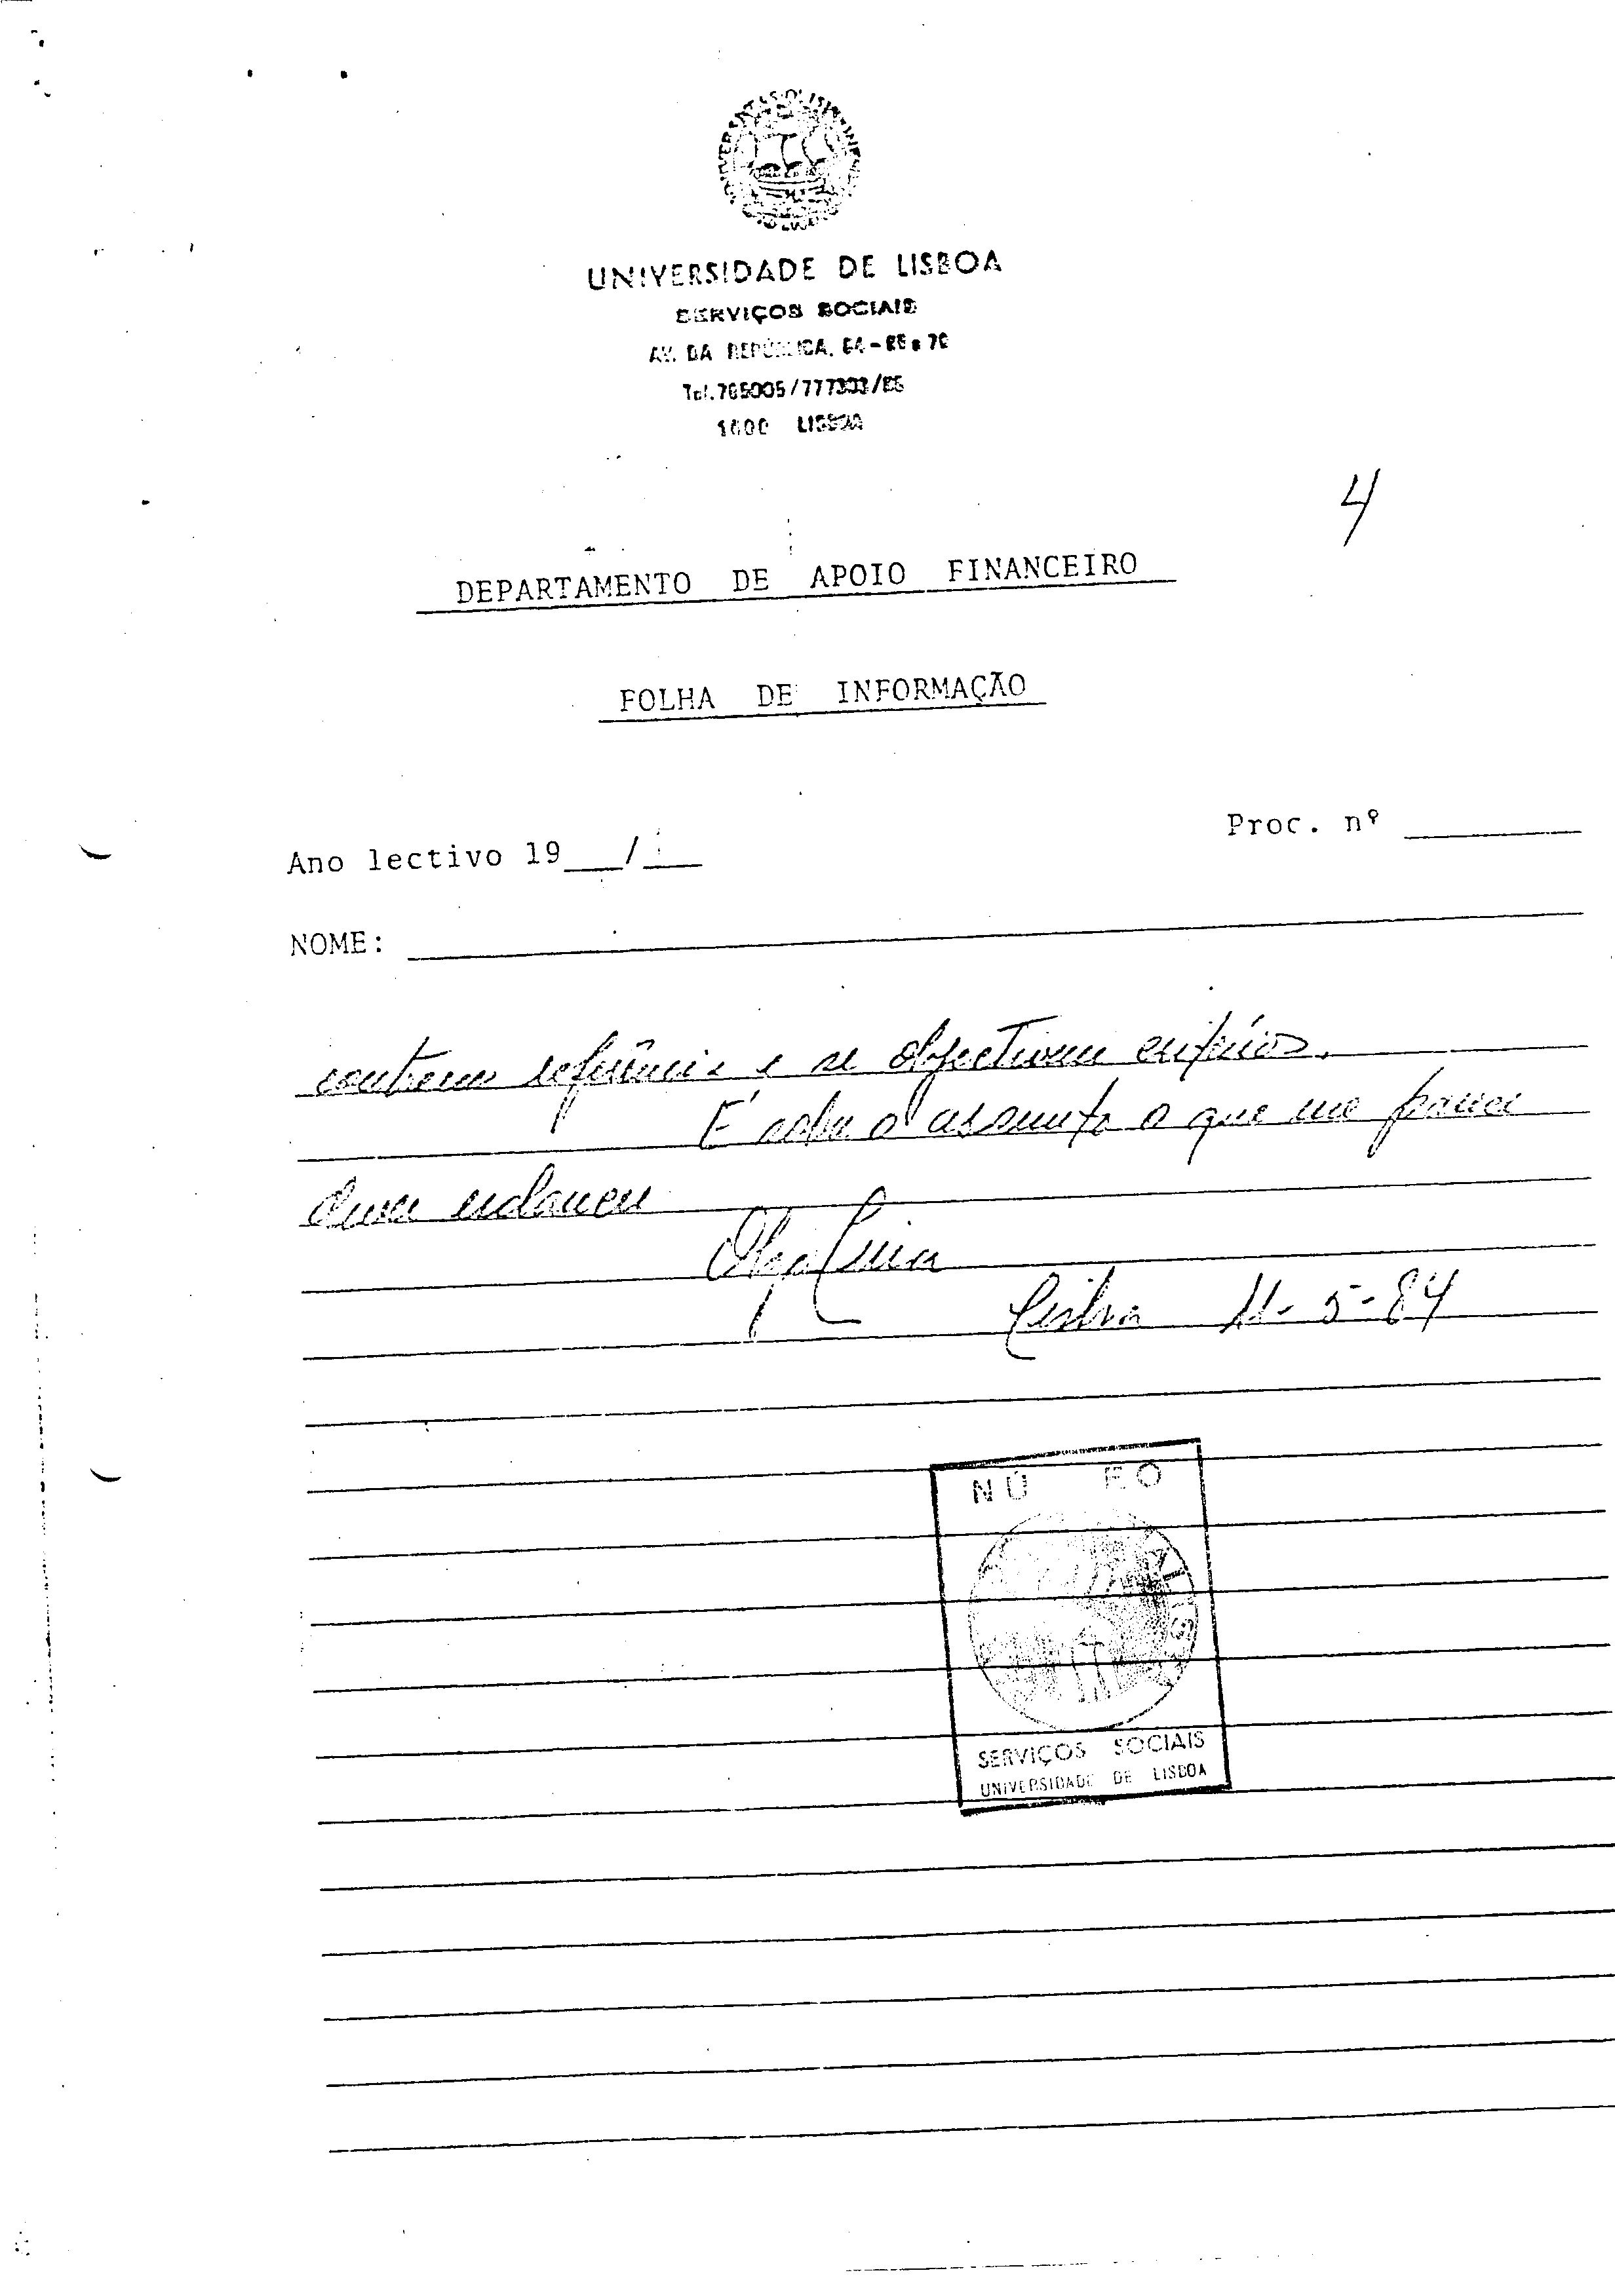 UNIVERSIDADE DE LISBOA
SERVIÇOS SOCIAIS
AV. DA REPÚBLICA, 64-
Tel. 765005/777303/
1600 LISBOA
4
DEPARTAMENTO DE APOIO FINANCEIRO
FOLHA DE INFORMAÇÃO
Proc. nº
Ano lectivo 19 /
NOME:
referência e se objectivem critérios.
É sobre o assunto o que me parece
dever esclarecer
Lisboa 11-5-84
NÚ EO
SERVIÇOS SOCIAIS
UNIVERSIDADE DE LISBOA